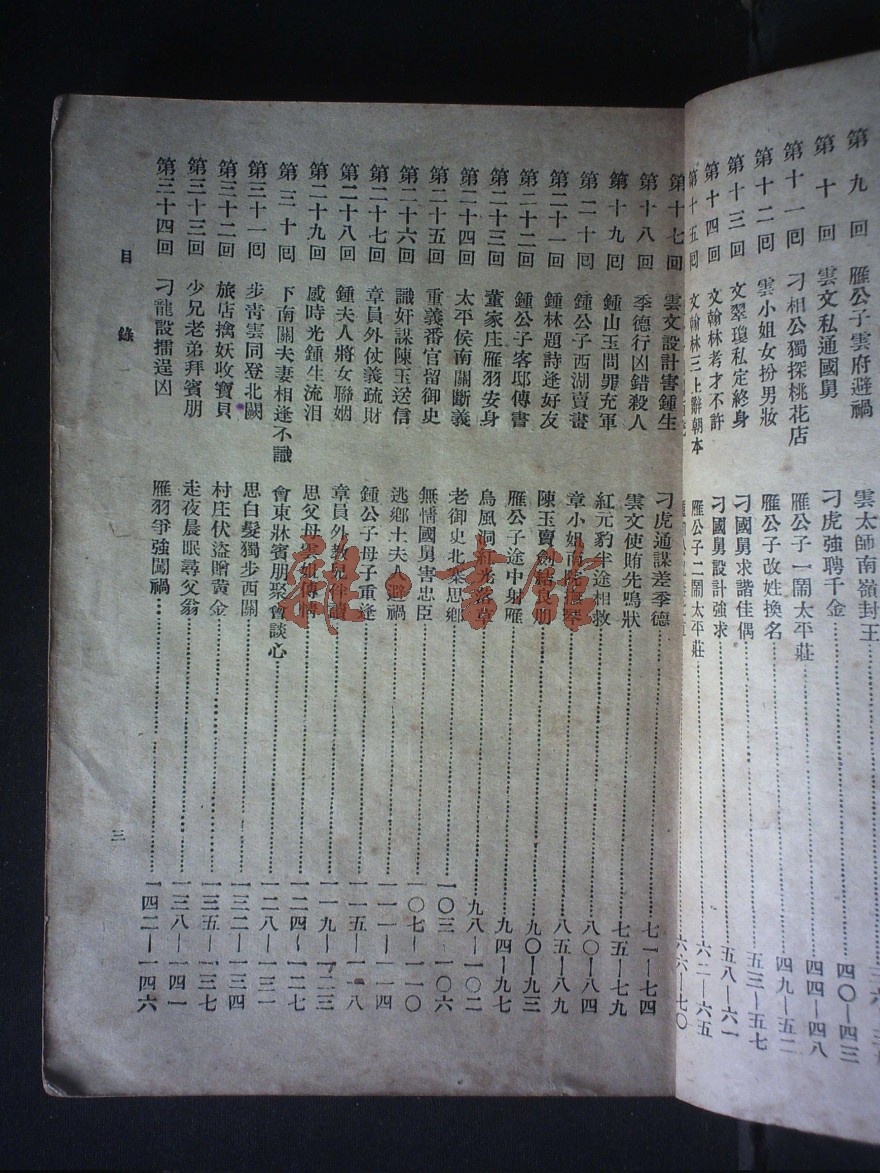 第九回 雁公子雲府避禍 雲太師南嶺封王
第十回 雲文私通國舅 刁虎強聘千金 四〇—四三
第十一回 刁相公獨探桃花店 雁公子一鬧太平莊 四四—四八
第十二回 雲小姐女扮男妝 雁公子改姓換名 四九—五二
第十三回 文翠瓊私定終身 刁國舅求諧佳偶 五三—五七
第十四回 文翰林考才不許 刁國舅設計強求 五八—六一
第十五回 文翰林三上辭朝本 雁公子二鬧太平莊 六二—六五
六六—七〇
第十七回 雲文設計害鍾生 刁虎通謀差季德 七一—七四
第十八回 季德行凶錯殺人 雲文使賄先鳴狀 七五—七九
第十九回 鍾山玉問罪充軍 紅元豹半途相救 八〇—八四
第二十回 鍾公子西湖賣畫 章小姐 琴 八五—八九
第二十一回 鍾林題詩逢好友 陳玉賣劍結良朋 九〇—九三
第二十二回 鍾公子客邸傳書 雁公子途中射雁 九四—九七
第二十三回 董家庄雁羽安身 鳥風洞紅元 草 九八—一〇二
第二十四回 太平侯南關斷義 老御史北 思鄉 一〇三—一〇六
第二十五回 重義番官留御史 無情國舅害忠臣 一〇七—一一〇
第二十六回 識奸謀陳玉送信 逃鄉土夫人避禍 一一一—一一四
第二十七回 章員外仗義疏財 鍾公子母子重逢 一一五—一一八
第二十八回 鍾夫人將女聯姻 章員外教兒伴讀 一一九—一二三
第二十九回 感時光鍾生流泪 思父母雲姐傳情 一二四—一二七
第三十回 下南關夫妻相逢不識 會東牀賓朋聚會談心 一二八—一三一
第三十一回 步青雲同登北闕 思白髮獨步西關 一三二—一三四
第三十二回 旅店擒妖收寶貝 村庄伏盜贈黃金 一三五—一三七
第三十三回 少兄老弟拜賓朋 走夜晨眠尋父翁 一三八—一四一
第三十四回 刁龍設擂逞凶 雁羽爭強闖禍 一四二—一四六
目錄
三